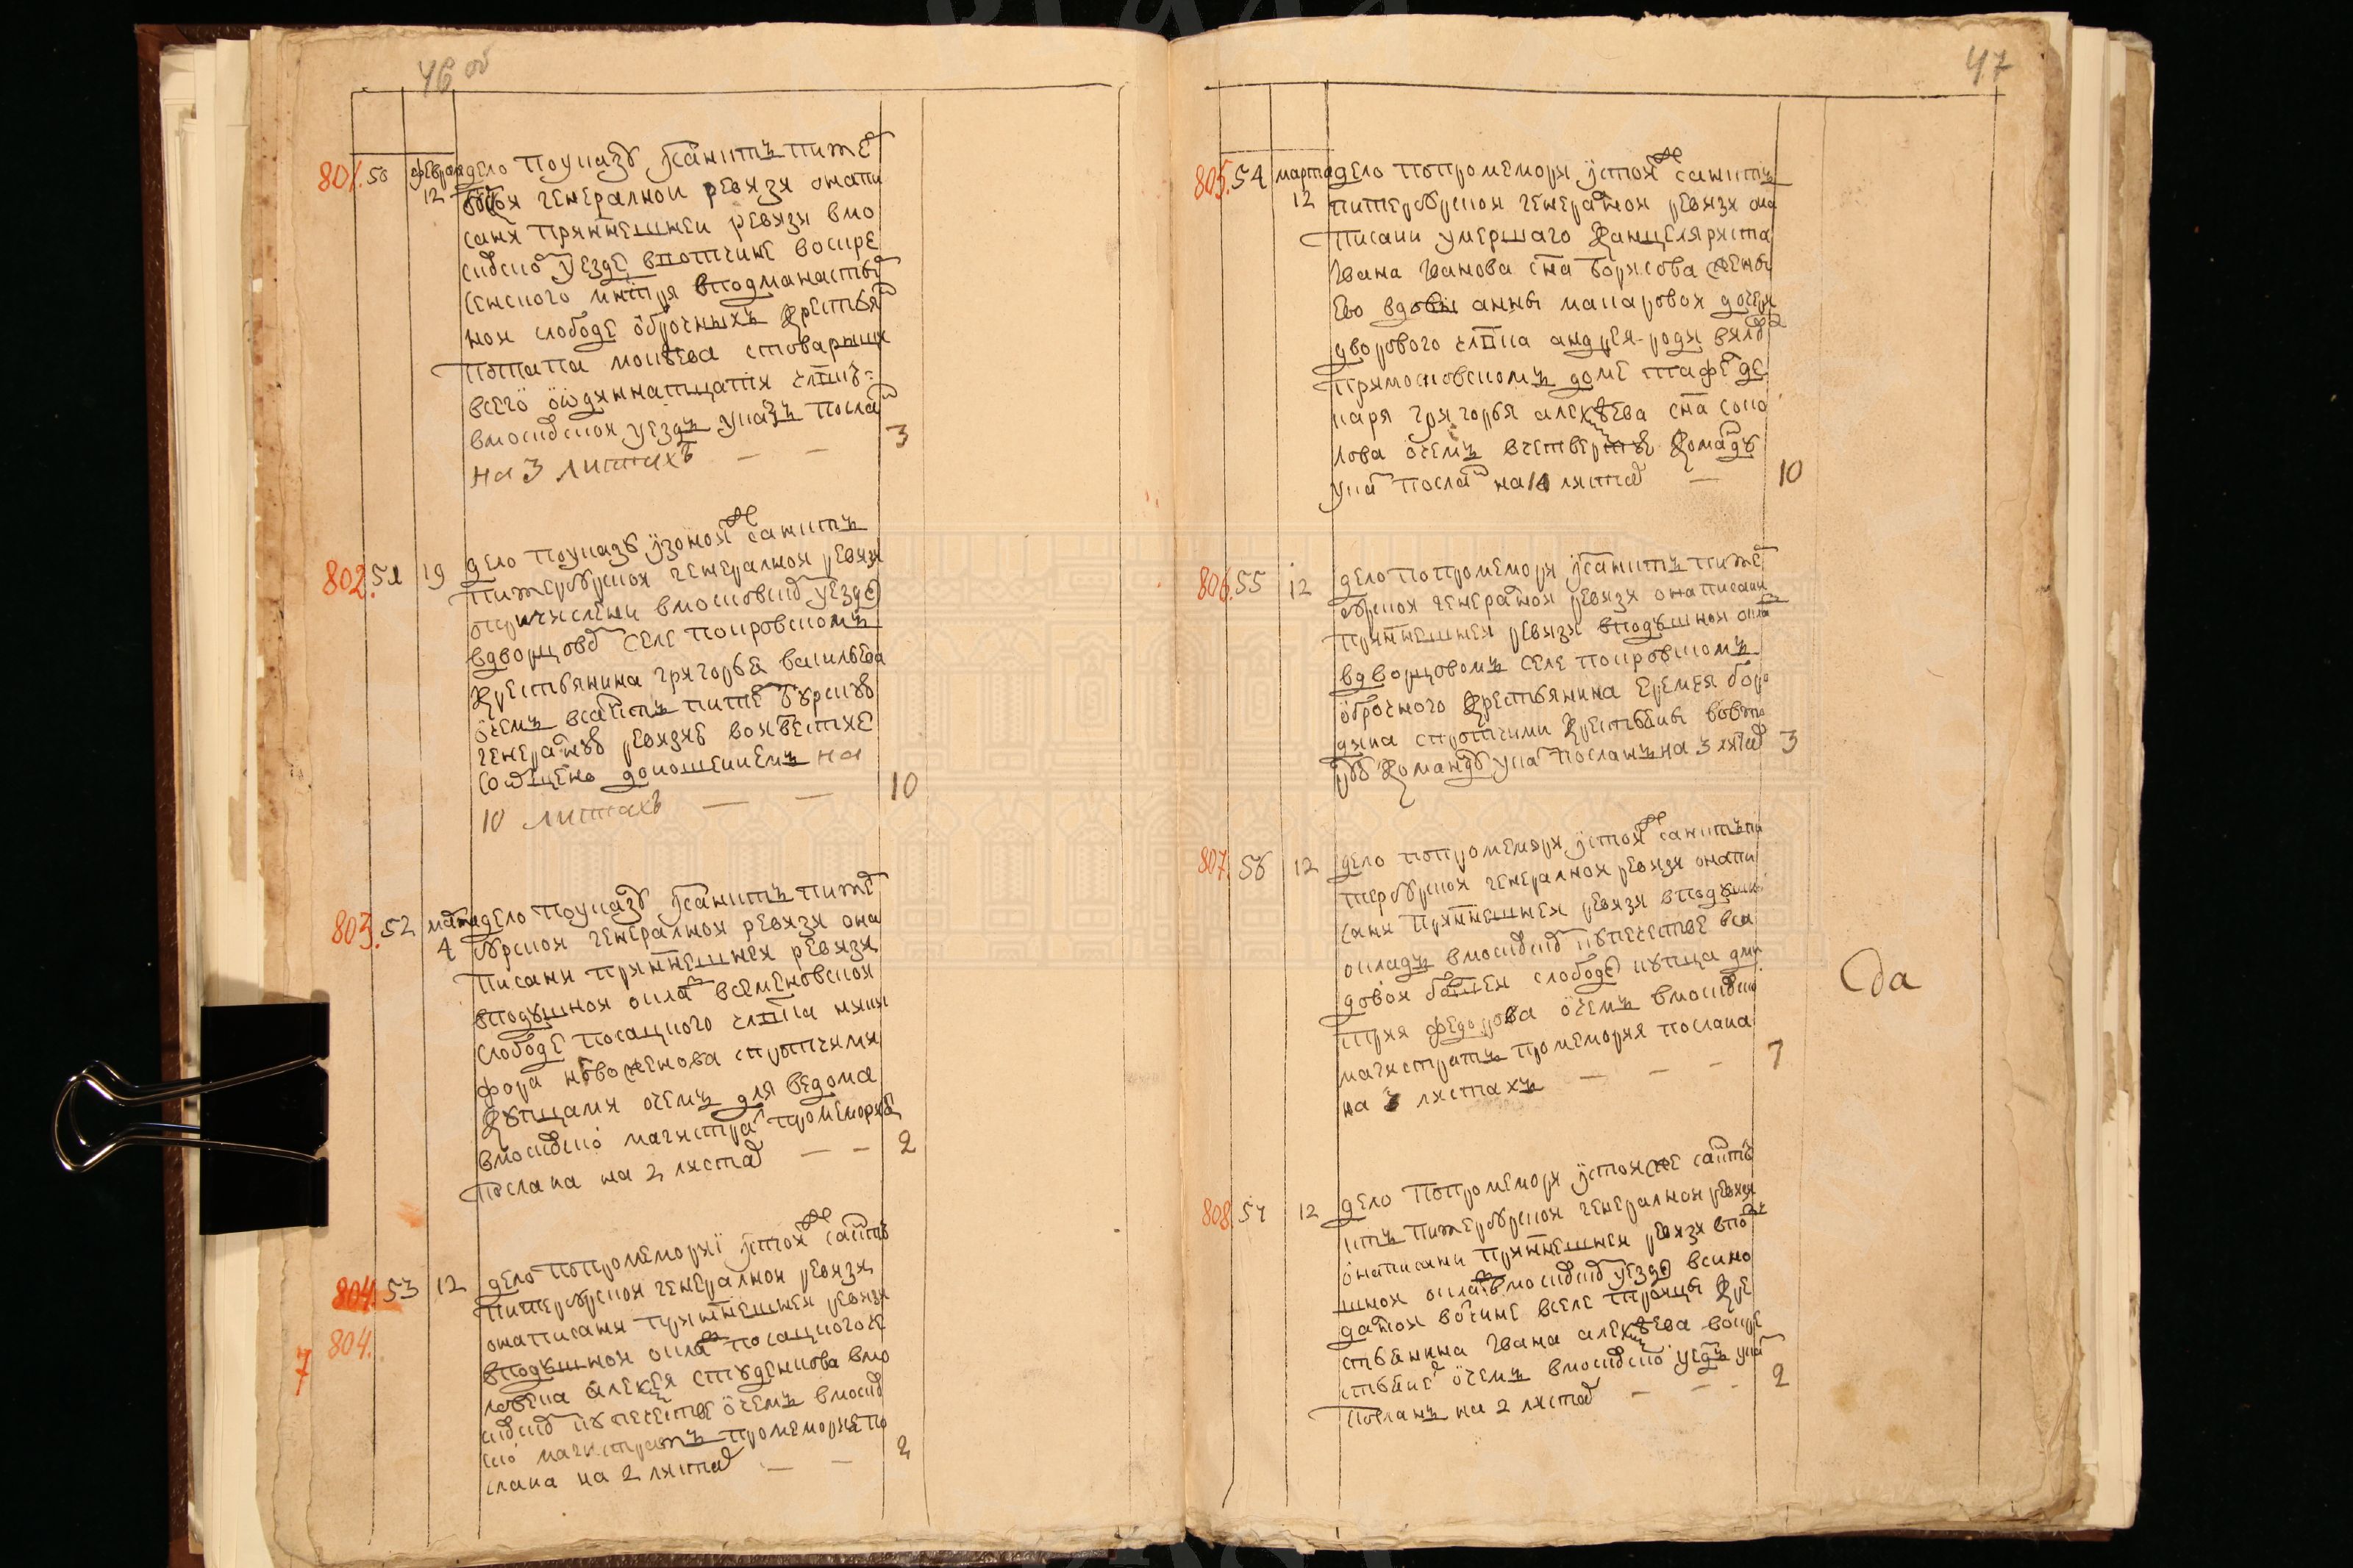 46 об
801. 50 февраля 12
дело поуказу ісанктъ питеръ
бурския генералнои ревизи онапи
сани притнешнеи ревизи вмо
сковском уезде ввотчине воскре
сенского мнтря вподманастыр
нои слободе оброчныхъ крестьян
потапа мокеева стоварыщи
всего одиннатцати члвкъ
вмосковскои уездъ указъ послан
на 3 листахъ — — 3
802. 51 19
дело поуказу ізонои же санктъ
питербурскои генералнои ревизи
опричислени вмосковском уезде
вдворцовом селе покровскомъ
крестьянина григорья васильева
очемъ всанктъ питербурскую
генералную ревизию воизвестие
сообщено доношениемъ на
10 листахъ — — 10
803. 52 марта 4
дело поуказу ісанктъ питер
бурскои генералнои ревизи она
писани притнешнеи ревизи
вподушнои оклад всеменовскои
слободе посацкого члвка ники
фора новоженова спротчими
купцами очемъ для ведома
вмосковскои магистрат промемория
послана на 2 листах — — 2
804. 53 12
804.
7
дело попромемории істои же санктъ
питербурскои генералнои ревизи
онаписани притнешнеи ревизи
вподушнои оклад посацкого че
ловека алексея студенкова вмо
сковском купечестве очемъ вмосков
скои магистратъ промемория по
слана на 2 листах — — 2
47
805. 54 марта 12
дело попромемори істои же санктъ
питербурскои генералнои ревизи она
писани умершаго канцеляриста
івана іванова сна борисова жены
ево вдовы анны макаровои дочери
дворового члвка андрея родивялова
примосковскомъ доме штафе де
каря григорья алексеева сна соко
лова очемъ вчетвертую команду
указ послан на 10 листах — 10
806. 55 12
дело попромемори ісанктъ питер
бурскои генералнои ревизи онаписани
притнешнеи ревизи вподушнои оклад
вдворцовомъ селе покровскомъ
оброчного крестьянина еремея боро
дина спротчими крестьяны вовто
рую команду указ посланъ на 3 листах 3
807. 56 12
дело попромемори істои же санктъ пи
тербурскои генералнои ревизи онапи
сани притнешнеи ревизи вподушнои
окладъ вмосковском купечестве вса
довои болшеи слободе купца дми
трия федорова очемъ вмосковскои
магистратъ промемория послана
на 3 листахъ — — — 7
да
808. 57 12
дело попромемори істои же санктъ
ктъ питербурскои генералнои ревизи
онаписани притнешнеи ревизи вподу
шнои оклад вмосковском уезде всино
далнои вотчине вселе троицы кре
стьянина івана алексеева вокре
стьяне очемъ вмосковскои уездъ указ
посланъ на 2 листах — — — 2